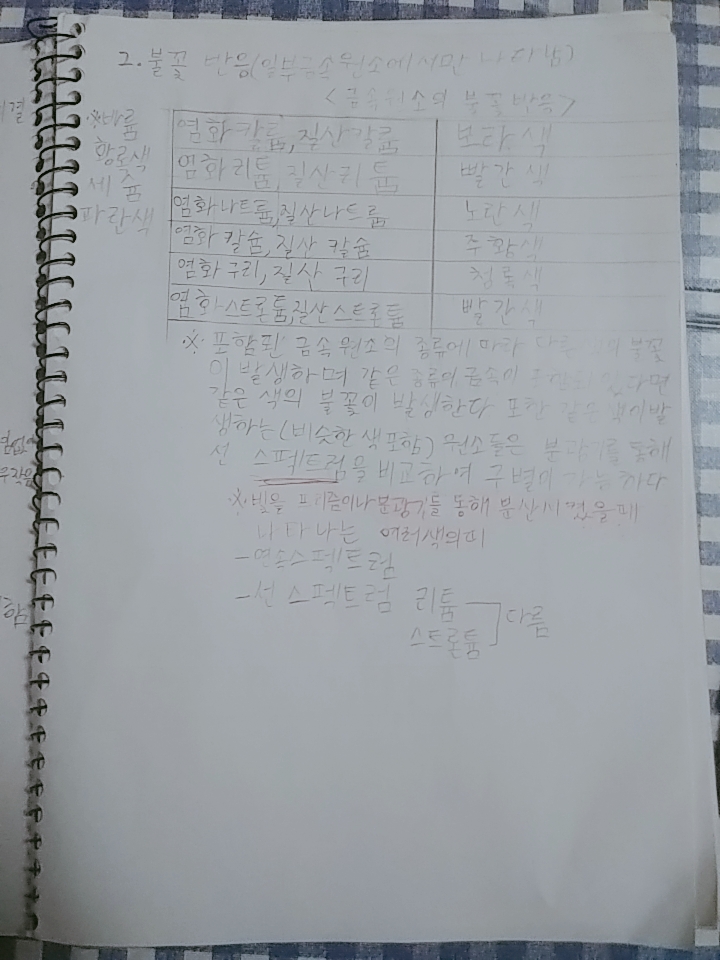 2. 불꽃 반응(일부금속원소에서만 나타남)
<금속원소의 불꽃반응>
※바륨
황록색
세슘
파란색
염화칼륨, 질산칼륨 보라색
염화리튬, 질산리튬 빨간색
염화나트륨,질산나트륨 노란색
염화 칼슘, 질산 칼슘 주황색
염화 구리, 질산 구리 청록색
염화스트론튬,질산스트론튬 빨간색
※ 포함된 금속원소의 종류에 따라 다른 불꽃
이 발생하며 같은 종류의 금속이 있다면
같은 색의 불꽃이 발생한다 또한 같은 색이발
생하는(비슷한색포함) 원소들은 분광기를 통해
선 스펙트럼을 비교하여 구별이 가능하다
※빛을 프리즘이나분광기를 통해 분산시켰을때
나타나는 여러색의띠
-연속스펙트럼
-선 스펙트럼 리튬
스트론튬 다름